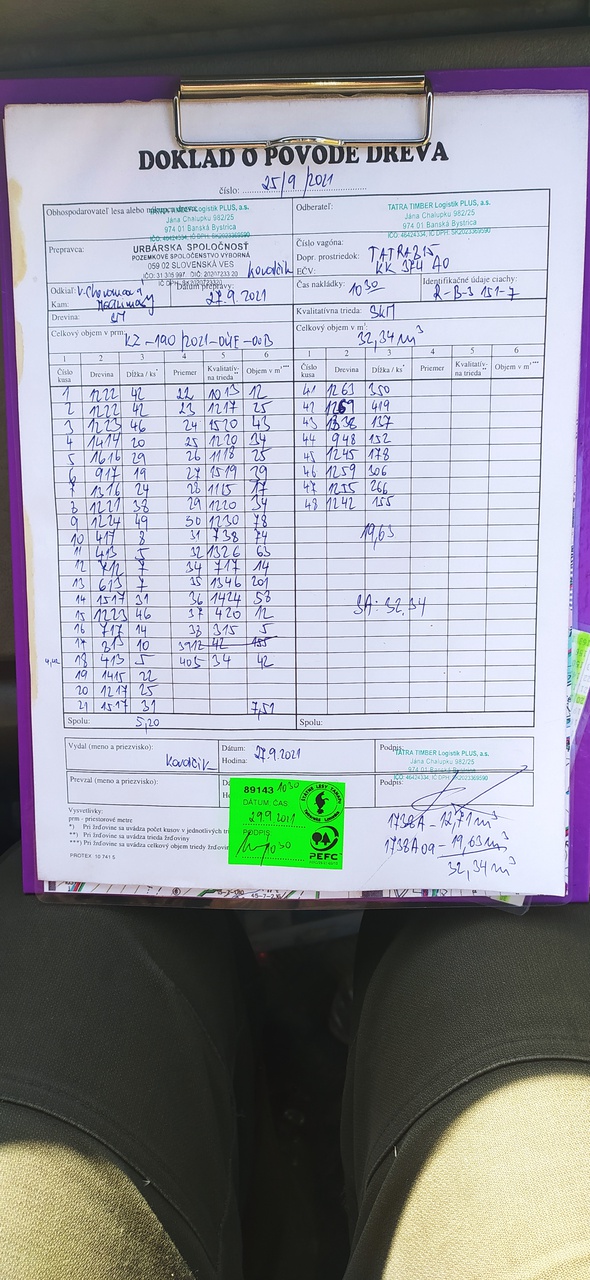 DOKLAD O PÔVODE DREVA
číslo: 25/9/2021
Obhospodarovateľ lesa alebo
TATRA TIMBER Logistik PLUS, a.s.
Jána Chalupku 982/25
974 01 Banská Bystrica
IČO: 46424334, IČ DPH: SK2023369590
Odberateľ:
TATRA TIMBER Logistik PLUS, a.s.
Jána Chalupku 982/25
974 01 Banská Bystrica
IČO: 46424334, IČ DPH: SK2023369590
Prepravca:
URBÁRSKA SPOLOČNOSŤ
POZEMKOVÉ SPOLOČENSTVO VÝBORNÁ
059 02 SLOVENSKÁ VES
Kovalčík
Číslo vagóna:
Dopr. prostriedok: TATRA 815
EČV: KK 374 AO
Odkiaľ:
Kam:
Dátum prepravy: 27.9.2021
Čas nakládky: 10 30
Identifikačné údaje ciachy:
R-B-3 151-7
Drevina: SM
Kvalitatívna trieda:
Celkový objem v prm: KZ-190/2021-
Celkový objem v m³: 32,34 m³
1 2 3 4 5 6 1 2 3 4 5 6
Číslo kusa Drevina Dĺžka / ks* Priemer Kvalitatív- na trieda** Objem v m³*** Číslo kusa Drevina Dĺžka / ks* Priemer Kvalitatív- na trieda** Objem v m³***
1 1222 42 22 1013 12 41 1263 350
2 1222 42 23 1217 25 42 1269 419
3 1223 46 24 1520 43 43 1238 137
4 1414 20 25 1220 34 44 948 152
5 1616 29 26 1118 25 45 1245 178
6 917 19 27 1519 39 46 1259 306
7 1316 24 28 1115 17 47 1255 266
8 1221 38 29 1220 34 48 1242 155
9 1224 49 30 1230 78
10 417 8 31 738 74 19,63
11 413 5 32 1326 63
12 712 7 34 717 14
13 613 7 35 1346 201
14 1517 31 36 1424 58 SA: 32,34
15 1223 46 37 420 12
16 717 14 38 315 5
17 313 10 3912 42 155
18 413 5 405 34 42
19 1415 22
20 1217 25
21 1517 31 7,51
Spolu: 5,20 Spolu:
Vydal (meno a priezvisko): Kovalčík
Dátum: 27.9.2021
Hodina:
Podpis:
TATRA TIMBER Logistik PLUS, a.s.
Jána Chalupku 982/25
974 01 Banská Bystrica
IČO: 46424334, IČ DPH: SK2023369590
Prevzal (meno a priezvisko):
Podpis:
89143 10 30
DÁTUM, ČAS
29.9.2021
PODPIS
10 30
PEFC
Vysvetlivky:
prm - priestorové metre
*) Pri žrďovine sa uvádza počet kusov v jednotlivých
**) Pri žrďovine sa uvádza trieda žrďoviny
***) Pri žrďovine sa uvádza celkový objem triedy žrďoviny
PROTEX 10 741 5
1738A - 12,71 m³
1738A09 - 19,63 m³
32,34 m³